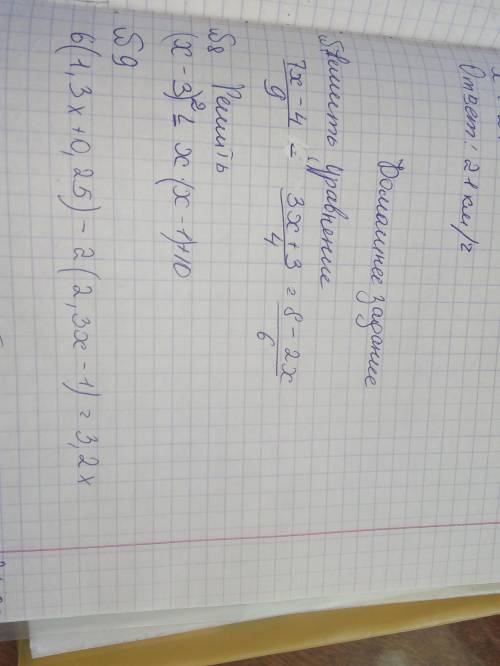 Ответ: 21 км/ч
Домашнее задание
Решить уравнение
7x - 4 / 9 = 3x + 3 / 4 = 8 - 2x / 6
№8 Решить
(x - 3)² = x (x - 1) + 10
№9
6(1,3x + 0,25) - 2(2,3x - 1) = 3,2x